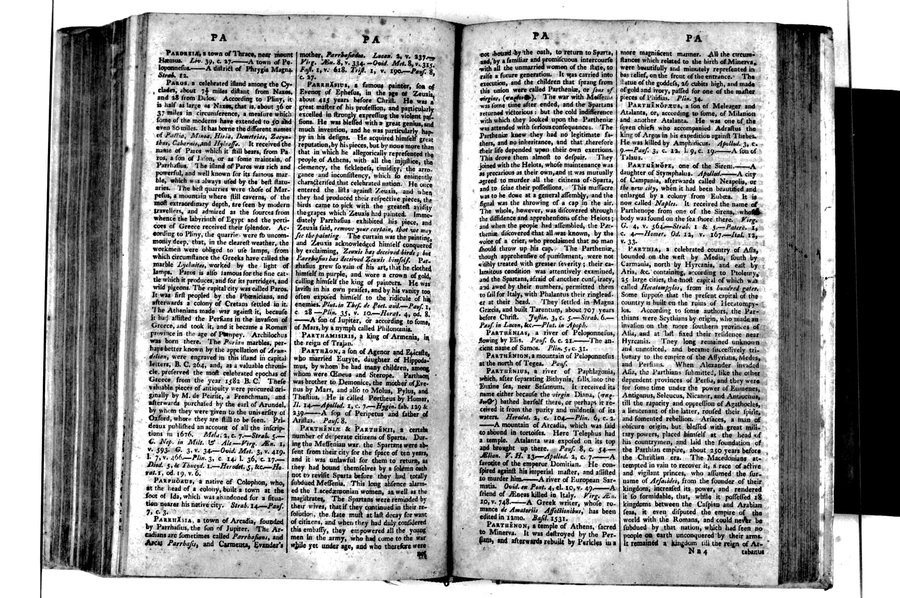 PA
PA
PAROREIA, a town of Thrace, near mount
Hæmus. Liv. 39, c. 27.——A town of Pe-
loponnesus.——A district of Phrygia Magna.
Strab. 12.
PAROS, a celebrated island among the Cy-
clades, about 7½ miles distant from Naxos,
and 28 from Delos. According to Pliny, it
is half as large as Naxos, that is, about 36 or
37 miles in circumference, a measure which
some of the moderns have extended to 50 and
even 80 miles. It has borne the different names
of Pactia, Minoa, Hiria, Demetrias, Zacyn-
thus, Cabarnis, and Hyleassa. It received the
name of Paros which it still bears, from Pa-
ros, a son of Jason, or as some maintain, of
Parrhasius. The island of Paros was rich and
powerful, and well known for its famous mar-
ble, which was always used by the best statu-
aries. The best quarries were those of Mar-
pesus, a mountain where still caverns, of the
most extraordinary depth, are seen by modern
travellers, and admired as the sources from
whence the labyrinth of Egypt and the porti-
cos of Greece received their splendor. Ac-
cording to Pliny, the quarries were so uncom-
monly deep, that, in the clearest weather, the
workmen were obliged to use lamps, from
which circumstance the Greeks have called the
marble Lychnites, worked by the light of
lamps. Paros is also famous for the fine cat-
tle which it produces, and for its partridges, and
wild pigeons. The capital city was called Paros.
It was first peopled by the Phœnicians, and
afterwards a colony of Cretans settled in it.
The Athenians made war against it, because
it had assisted the Persians in the invasion of
Greece, and took it, and it became a Roman
province in the age of Pompey. Archilochus
was born there. The Parian marbles, per-
haps better known by the appellation of Arun-
delian, were engraved in this island in capital
letters, B. C. 264, and, as a valuable chroni-
cle, preserved the most celebrated epochas of
Greece, from the year 1582 B. C. These
valuable pieces of antiquity were procured ori-
ginally by M. de Peiresc, a Frenchman, and
afterwards purchased by the earl of Arundel,
by whom they were given to the university of
Oxford, where they are still to be seen. Pri-
deaux published an account of all the inscrip-
tions in 1676. Mela 2, c. 7.—Strab. 5.—
C. Nep. in Milt. & Alc.—Virg. Æn. 1,
v. 593. G. 3, v. 34.—Ovid. Met. 3, v. 419.
l. 7, v. 466.—Plin. 3, c. 14. l. 36, c. 17.—
Diod. 5, & Thucyd. 1.—Herodot. 5, &c.—Ho-
rat. 1, od. 19, v. 6.
PARPHORUS, a native of Colophon, who,
at the head of a colony, built a town at the
foot of Ida, which was abandoned for a situa-
tion nearer his native city. Strab. 14.—Paus.
7, c. 3.
PARRHASIA, a town of Arcadia, founded
by Parrhasius, the son of Jupiter. The Ar-
cadians are sometimes called Parrhasians, and
Arcas Parrhasis, and Carmenta, Evander's
mother, Parrhasiadea. Lucan. 2, v. 237.—
Virg. Æn. 8, v. 334.—Ovid. Met. 8, v. 315.
Fast. 1, v. 618. Trist. 1, v. 190.—Paus. 8,
c. 27.
PARRHASIUS, a famous painter, son of
Evenor of Ephesus, in the age of Zeuxis,
about 415 years before Christ. He was a
great master of his profession, and particularly
excelled in strongly expressing the violent pas-
sions. He was blessed with a great genius, and
much invention, and he was particularly hap-
py in his designs. He acquired himself great
reputation, by his pieces, but by none more than
that in which he allegorically represented the
people of Athens, with all the injustice, the
clemency, the fickleness, timidity, the arro-
gance and inconsistency, which so eminently
characterised that celebrated nation. He once
entered the lists against Zeuxis, and when
they had produced their respective pieces, the
birds came to pick with the greatest avidity
the grapes which Zeuxis had painted. Imme-
diately Parrhasius exhibited his piece, and
Zeuxis said, remove your curtain, that we may
see the painting. The curtain was the painting,
and Zeuxis acknowledged himself conquered
by exclaiming, Zeuxis has deceived birds; but
Parrhasius has deceived Zeuxis himself. Par-
rhasius grew so vain of his art, that he clothed
himself in purple, and wore a crown of gold,
calling himself the king of painters. He was
lavish in his own praises, and by his vanity too
often exposed himself to the ridicule of his
enemies. Plut. in Thes. de Poet. aud.—Paus. 1,
c. 28.—Plin. 35, v. 10.—Horat. 4, od. 8.
——A son of Jupiter, or according to some,
of Mars, by a nymph called Philonomia.
PARTHAMISIRIS, a king of Armenia, in
the reign of Trajan.
PARTHAON, a son of Agenor and Epicaste,
who married Euryte, daughter of Hippoda-
mus, by whom he had many children, among
whom were Œneus and Sterope. Parthaon
was brother to Demonice, the mother of Eve-
nus by Mars, and also to Molus, Pylus, and
Thestius. He is called Portheus by Homer,
Il. 14.—Apollod. 1, c. 7.—Hygin. fab. 129 &
239.——A son of Peripetus and father of
Aristas. Paus. 8.
PARTHENIÆ & PARTHENII, a certain
number of desperate citizens of Sparta. Dur-
ing the Messenian war, the Spartans were ab-
sent from their city for the space of ten years,
and it was unlawful for them to return, as
they had bound themselves by a solemn oath
not to revisit Sparta before they had totally
subdued Messenia. This long absence alarm-
ed the Lacedæmonian women, as well as the
magistrates. The Spartans were reminded by
their wives, that if they continued in their re-
solution, the state must at last decay for want
of citizens, and when they had duly considered
this embassy, they empowered all the young
men in the army, who had come to the war
while yet under age, and who therefore were
not
PA
PA
not bound by the oath, to return to Sparta,
and, by a familiar and promiscuous intercourse
with all the unmarried women of the state, to
raise a future generation. It was carried into
execution, and the children that sprang from
this union were called Partheniæ, or sons of
virgins, (παρθενος). The war with Messenia
was some time after ended, and the Spartans
returned victorious; but the cold indifference
with which they looked upon the Partheniæ
was attended with serious consequences. The
Partheniæ knew they had no legitimate fa-
thers, and no inheritance, and that therefore
their life depended upon their own exertions.
This drove them almost to despair. They
joined with the Helots, whose maintenance was
as precarious as their own, and it was mutually
agreed to murder all the citizens of Sparta,
and to seize their possessions. This massacre
was to be done at a general assembly, and the
signal was the throwing of a cap in the air.
The whole, however, was discovered through
the diffidence and apprehensions of the Helots;
and when the people had assembled, the Par-
theniæ discovered that all was known, by the
voice of a crier, who proclaimed that no man
should throw up his cap. The Partheniæ,
though apprehensive of punishment, were not
visibly treated with greater severity; their ca-
lamitous condition was attentively examined,
and the Spartans, afraid of another conspiracy,
and awed by their numbers, permitted them
to sail for Italy, with Phalantus their ringlead-
er at their head. They settled in Magna
Græcia, and built Tarentum, about 707 years
before Christ. Justin. 3, c. 5.—Strab. 6.—
Paus. in Lacon, &c.—Plut. in Apoph.
PARTHENIAS, a river of Peloponnesus,
flowing by Elis. Paus. 6, c. 21.——The an-
cient name of Samos. Plin. 5, c. 31.
PARTHENION, a mountain of Peloponnesus
at the north of Tegea. Paus.
PARTHENIUS, a river of Paphlagonia,
which, after separating Bithynia, falls into the
Euxine sea, near Sesamum. It received its
name either because the virgin Diana, (παρ-
θενος) bathed herself there, or perhaps it re-
ceived it from the purity and mildness of its
waters. Herodot. 2, c. 104.—Plin. 6, c. 2.
——A mountain of Arcadia, which was said
to abound in tortoises. Here Telephus had
a temple. Atalanta was exposed on its top
and brought up there. Paus. 8, c. 54.—
Ælian. V. H. 13.—Apollod. 2, c. 7.——A
favorite of the emperor Domitian. He con-
spired against his imperial master, and assisted
to murder him.——A river of European Sar-
matia. Ovid. ex Pont. 4, el. 10, v. 49.——A
friend of Æneas killed in Italy. Virg. Æn.
10, v. 748.——A Greek writer, whose ro-
mance de Amatoriis Affectionibus, has been
edited in 12mo. Basil. 1531.
PARTHENON, a temple of Athens, sacred
to Minerva. It was destroyed by the Per-
sians, and afterwards rebuilt by Pericles in a
more magnificent manner. All the circum-
stances which related to the birth of Minerva,
were beautifully and minutely represented in
bas relief, on the front of the entrance. The
statue of the goddess, 26 cubits high, and made
of gold and ivory, passed for one of the master
pieces of Phidias. Plin. 34.
PARTHENOPÆUS, a son of Meleager and
Atalanta, or, according to some, of Milanion
and another Atalanta. He was one of the
seven chiefs who accompanied Adrastus the
king of Argos in his expedition against Thebes.
He was killed by Amphidicus. Apollod. 3, c.
9.—Paus. 3, c. 12. l. 9, c. 19.——A son of
Talaus.
PARTHENOPE, one of the Sirens.——A
daughter of Stymphalus. Apollod.——A city
of Campania, afterwards called Neapolis, or
the new city, when it had been beautified and
enlarged by a colony from Eubœa. It is
now called Naples. It received the name of
Parthenope from one of the Sirens, whose
body was found on the sea shore there. Virg.
G. 4, v. 564.—Strab. 1 & 5.—Paterc. 1,
c. 4.—Homer. Od. 12, v. 167.—Ital. 12,
v. 33.
PARTHIA, a celebrated country of Asia,
bounded on the west by Media, south by
Carmania, north by Hyrcania, and east by
Aria, &c. containing, according to Ptolemy,
25 large cities, the most capital of which was
called Hecatompylos, from its hundred gates.
Some suppose that the present capital of the
country is built on the ruins of Hecatompy-
los. According to some authors, the Par-
thians were Scythians by origin, who made an
invasion on the more southern provinces of
Asia, and at last fixed their residence near
Hyrcania. They long remained unknown
and unnoticed, and became successively tri-
butary to the empire of the Assyrians, Medes,
and Persians. When Alexander invaded
Asia, the Parthians submitted, like the other
dependent provinces of Persia, and they were
for some time under the power of Eumenes,
Antigonus, Seleucus, Nicanor, and Antiochus,
till the rapacity and oppression of Agathocles,
a lieutenant of the latter, roused their spirit,
and fomented rebellion. Arsaces, a man of
obscure origin, but blessed with great mili-
tary powers, placed himself at the head of
his countrymen, and laid the foundation of
the Parthian empire, about 250 years before
the Christian era. The Macedonians at-
tempted in vain to recover it, a race of active
and vigilant princes, who assumed the sur-
name of Arsacides, from the founder of their
kingdom, increased its power, and rendered
it so formidable, that, while it possessed 18
kingdoms between the Caspian and Arabian
seas, it even disputed the empire of the
world with the Romans, and could never be
subdued by that nation, which had seen no
people on earth unconquered by their arms.
It remained a kingdom till the reign of Ar-
N n 4
tabanus